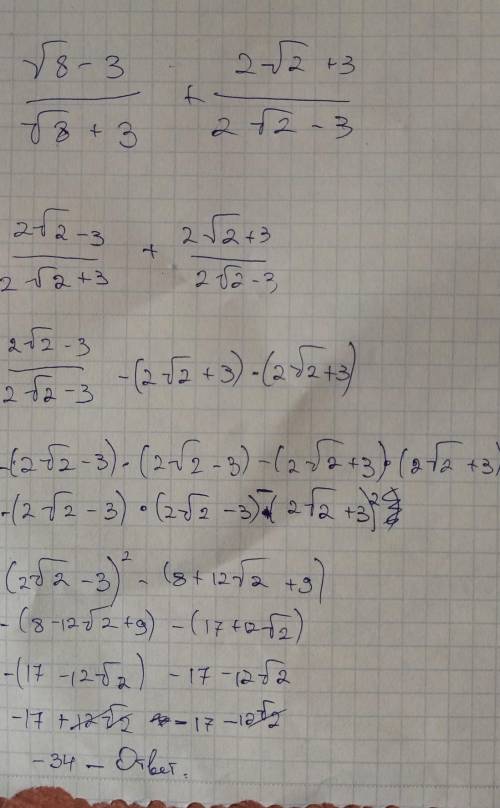 √8 - 3 / √8 + 3 + 2√2 + 3 / 2√2 - 3
2√2 - 3 / 2√2 + 3 + 2√2 + 3 / 2√2 - 3
2√2 - 3 / 2√2 - 3 - (2√2 + 3) · (2√2 + 3)
-(2√2 - 3) · (2√2 - 3) - (2√2 + 3) · (2√2 + 3)
-(2√2 - 3) · (2√2 - 3) - (2√2 + 3)²
(2√2 - 3)² - (8 + 12√2 + 9)
-(8 - 12√2 + 9) - (17 + 12√2)
-(17 - 12√2) - 17 - 12√2
-17 + 12√2 - 17 - 12√2
-34 - Ответ.